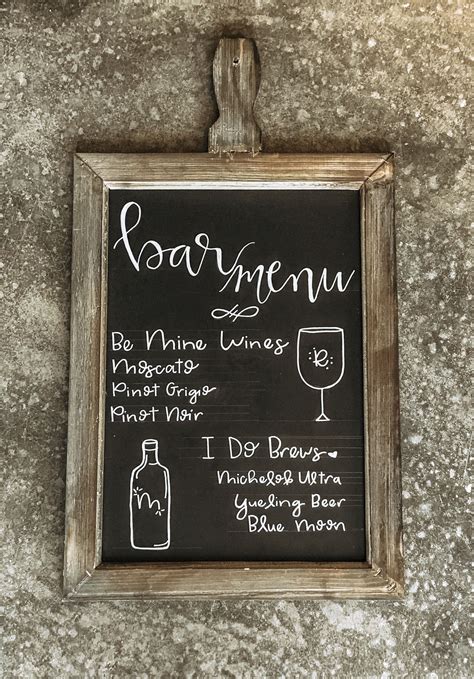 bar menu
Be Mine Wines
Moscato
Pinot Grigio
Pinot Noir
R
I Do Brews
Michelob Ultra
Yueling Beer
Blue Moon
M